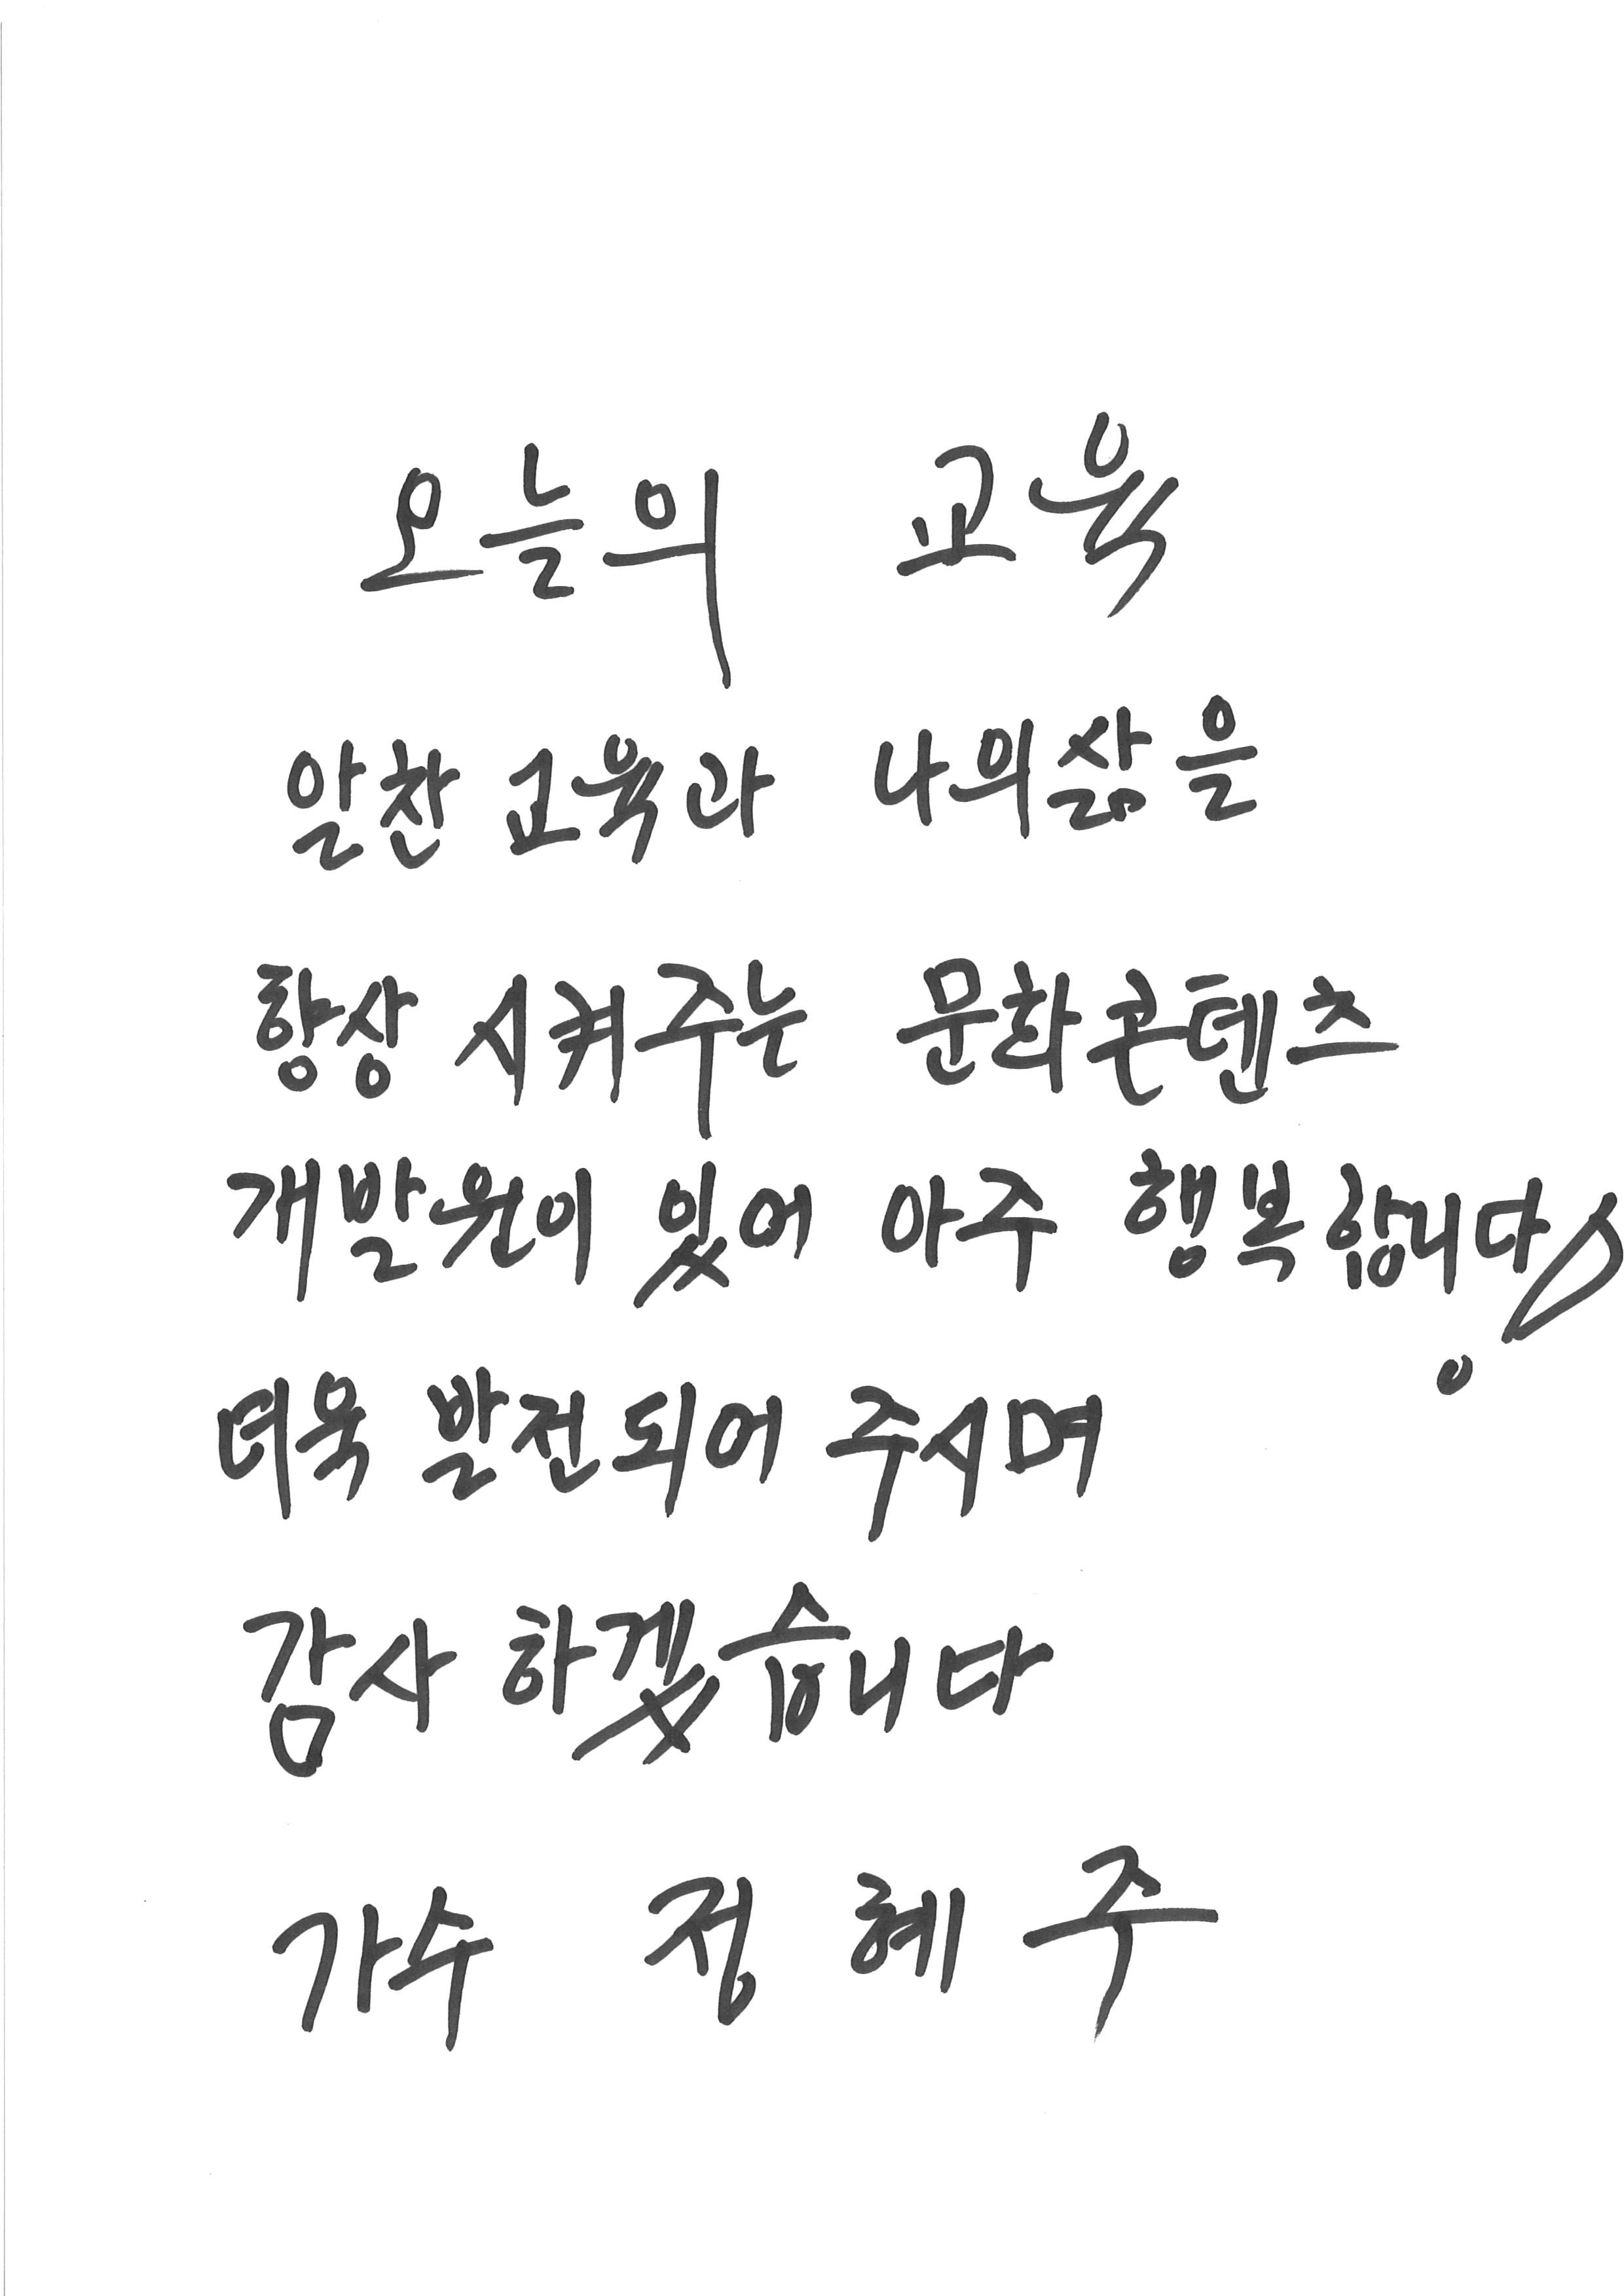 오늘의 교육
알찬 교육과 나의 삶을
향상 시켜주는 문화콘텐츠
개발원이 있어 아주 행복합니다!
더욱 발전되어 주시며
감사 하겠습니다
가수 정혜주